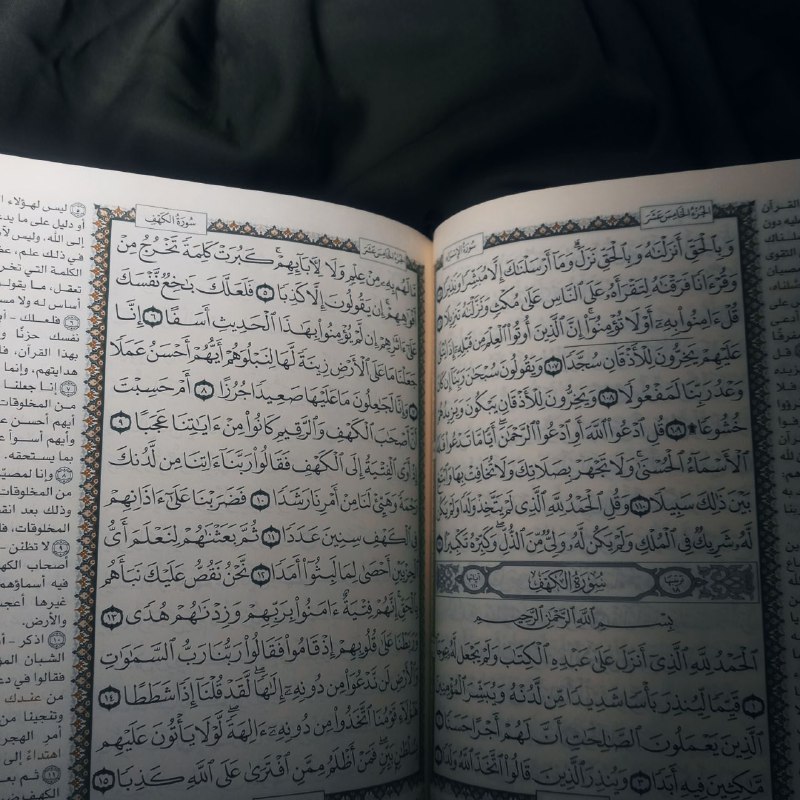 الجُزْءُ الخَامِسَ عَشَرَ
سُورَةُ الإِسْرَاءِ
وَبِٱلْحَقِّ أَنزَلْنَٰهُ وَبِٱلْحَقِّ نَزَلَۗ وَمَآ أَرْسَلْنَٰكَ إِلَّا مُبَشِّرًا وَنَذِيرًا
وَقُرْءَانًا فَرَقْنَٰهُ لِتَقْرَأَهُۥ عَلَى ٱلنَّاسِ عَلَىٰ مُكْثٍ وَنَزَّلْنَٰهُ تَنزِيلًا
قُلْ ءَامِنُوا۟ بِهِۦٓ أَوْ لَا تُؤْمِنُوٓا۟ۚ إِنَّ ٱلَّذِينَ أُوتُوا۟ ٱلْعِلْمَ مِن قَبْلِهِۦٓ إِذَا يُتْلَىٰ
عَلَيْهِمْ يَخِرُّونَ لِلْأَذْقَانِ سُجَّدًا ١٠٧ وَيَقُولُونَ سُبْحَٰنَ رَبِّنَآ إِن كَانَ
وَعْدُ رَبِّنَا لَمَفْعُولًا ١٠٨ وَيَخِرُّونَ لِلْأَذْقَانِ يَبْكُونَ وَيَزِيدُهُمْ
خُشُوعًا ١٠٩ قُلِ ٱدْعُوا۟ ٱللَّهَ أَوِ ٱدْعُوا۟ ٱلرَّحْمَٰنَۖ أَيًّا مَّا تَدْعُوا۟ فَلَهُ
ٱلْأَسْمَآءُ ٱلْحُسْنَىٰۚ وَلَا تَجْهَرْ بِصَلَاتِكَ وَلَا تُخَافِتْ بِهَا وَٱبْتَغِ
بَيْنَ ذَٰلِكَ سَبِيلًا ١١٠ وَقُلِ ٱلْحَمْدُ لِلَّهِ ٱلَّذِى لَمْ يَتَّخِذْ وَلَدًا وَلَمْ يَكُن
لَّهُۥ شَرِيكٌ فِى ٱلْمُلْكِ وَلَمْ يَكُن لَّهُۥ وَلِىٌّ مِّنَ ٱلذُّلِّۖ وَكَبِّرْهُ تَكْبِيرًۢا
سُورَةُ الكَهْفِ
بِسْمِ ٱللَّهِ ٱلرَّحْمَٰنِ ٱلرَّحِيمِ
ٱلْحَمْدُ لِلَّهِ ٱلَّذِىٓ أَنزَلَ عَلَىٰ عَبْدِهِ ٱلْكِتَٰبَ وَلَمْ يَجْعَل لَّهُۥ عِوَجَاۜ
١ قَيِّمًا لِّيُنذِرَ بَأْسًا شَدِيدًا مِّن لَّدُنْهُ وَيُبَشِّرَ ٱلْمُؤْمِنِينَ
ٱلَّذِينَ يَعْمَلُونَ ٱلصَّٰلِحَٰتِ أَنَّ لَهُمْ أَجْرًا حَسَنًا
مَّٰكِثِينَ فِيهِ أَبَدًا ٣ وَيُنذِرَ ٱلَّذِينَ قَالُوا۟ ٱتَّخَذَ ٱللَّهُ وَلَدًا
الجُزْءُ الخَامِسَ عَشَرَ
سُورَةُ الكَهْفِ
مَّا لَهُم بِهِۦ مِنْ عِلْمٍ وَلَا لِءَابَآئِهِمْۚ كَبُرَتْ كَلِمَةً تَخْرُجُ مِنْ
أَفْوَٰهِهِمْۚ إِن يَقُولُونَ إِلَّا كَذِبًا ٥ فَلَعَلَّكَ بَٰخِعٌ نَّفْسَكَ
عَلَىٰٓ ءَاثَٰرِهِمْ إِن لَّمْ يُؤْمِنُوا۟ بِهَٰذَا ٱلْحَدِيثِ أَسَفًا ٦ إِنَّا
جَعَلْنَا مَا عَلَى ٱلْأَرْضِ زِينَةً لَّهَا لِنَبْلُوَهُمْ أَيُّهُمْ أَحْسَنُ عَمَلًا
٧ وَإِنَّا لَجَٰعِلُونَ مَا عَلَيْهَا صَعِيدًا جُرُزًا ٨ أَمْ حَسِبْتَ
أَنَّ أَصْحَٰبَ ٱلْكَهْفِ وَٱلرَّقِيمِ كَانُوا۟ مِنْ ءَايَٰتِنَا عَجَبًا ٩
إِذْ أَوَى ٱلْفِتْيَةُ إِلَى ٱلْكَهْفِ فَقَالُوا۟ رَبَّنَآ ءَاتِنَا مِن لَّدُنكَ
رَحْمَةً وَهَيِّئْ لَنَا مِنْ أَمْرِنَا رَشَدًا ١٠ فَضَرَبْنَا عَلَىٰٓ ءَاذَانِهِمْ
فِى ٱلْكَهْفِ سِنِينَ عَدَدًا ١١ ثُمَّ بَعَثْنَٰهُمْ لِنَعْلَمَ أَىُّ
ٱلْحِزْبَيْنِ أَحْصَىٰ لِمَا لَبِثُوٓا۟ أَمَدًا ١٢ نَّحْنُ نَقُصُّ عَلَيْكَ نَبَأَهُم
بِٱلْحَقِّۚ إِنَّهُمْ فِتْيَةٌ ءَامَنُوا۟ بِرَبِّهِمْ وَزِدْنَٰهُمْ هُدًى ١٣
وَرَبَطْنَا عَلَىٰ قُلُوبِهِمْ إِذْ قَامُوا۟ فَقَالُوا۟ رَبُّنَا رَبُّ ٱلسَّمَٰوَٰتِ
وَٱلْأَرْضِ لَن نَّدْعُوَا۟ مِن دُونِهِۦٓ إِلَٰهًاۖ لَّقَدْ قُلْنَآ إِذًا شَطَطًا ١٤
هَٰٓؤُلَآءِ قَوْمُنَا ٱتَّخَذُوا۟ مِن دُونِهِۦٓ ءَالِهَةًۖ لَّوْلَا يَأْتُونَ عَلَيْهِم
بِسُلْطَٰنٍۭ بَيِّنٍۖ فَمَنْ أَظْلَمُ مِمَّنِ ٱفْتَرَىٰ عَلَى ٱللَّهِ كَذِبًا ١٥
ليس لهؤلاء
أو دليل على ما
إلى الله، وليس
في ذلك علم،
الكلمة التي
تعقل، ما
أساس له ولا
فلعلك
نفسك حزنًا
بهذا القرآن،
هدايتهم، وإنما
إنا جعلنا
من المخلوقات
أيهم أحسن
وأيهم أسوأ
بما يستحقه.
وإنا
من المخلوقات
وذلك بعد
المخلوقات،
لا تظنن
أصحاب الكهف
فيه أسماؤهم
غيرها
والأرض.
اذكر
الشبان
فقالوا في
من عندك
وتنجينا من
أمر
اهتداءً إلى
ثم
الكهف